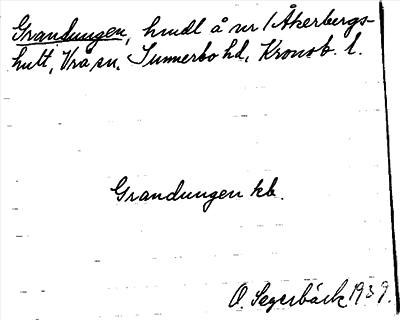 Grandungen, hmdl å nr 1 Åkerbergs-
hult, Vrå sn, Sunnerbo hd, Kronob. l.
Grandungen kb.
O. Segerbäck 1939.